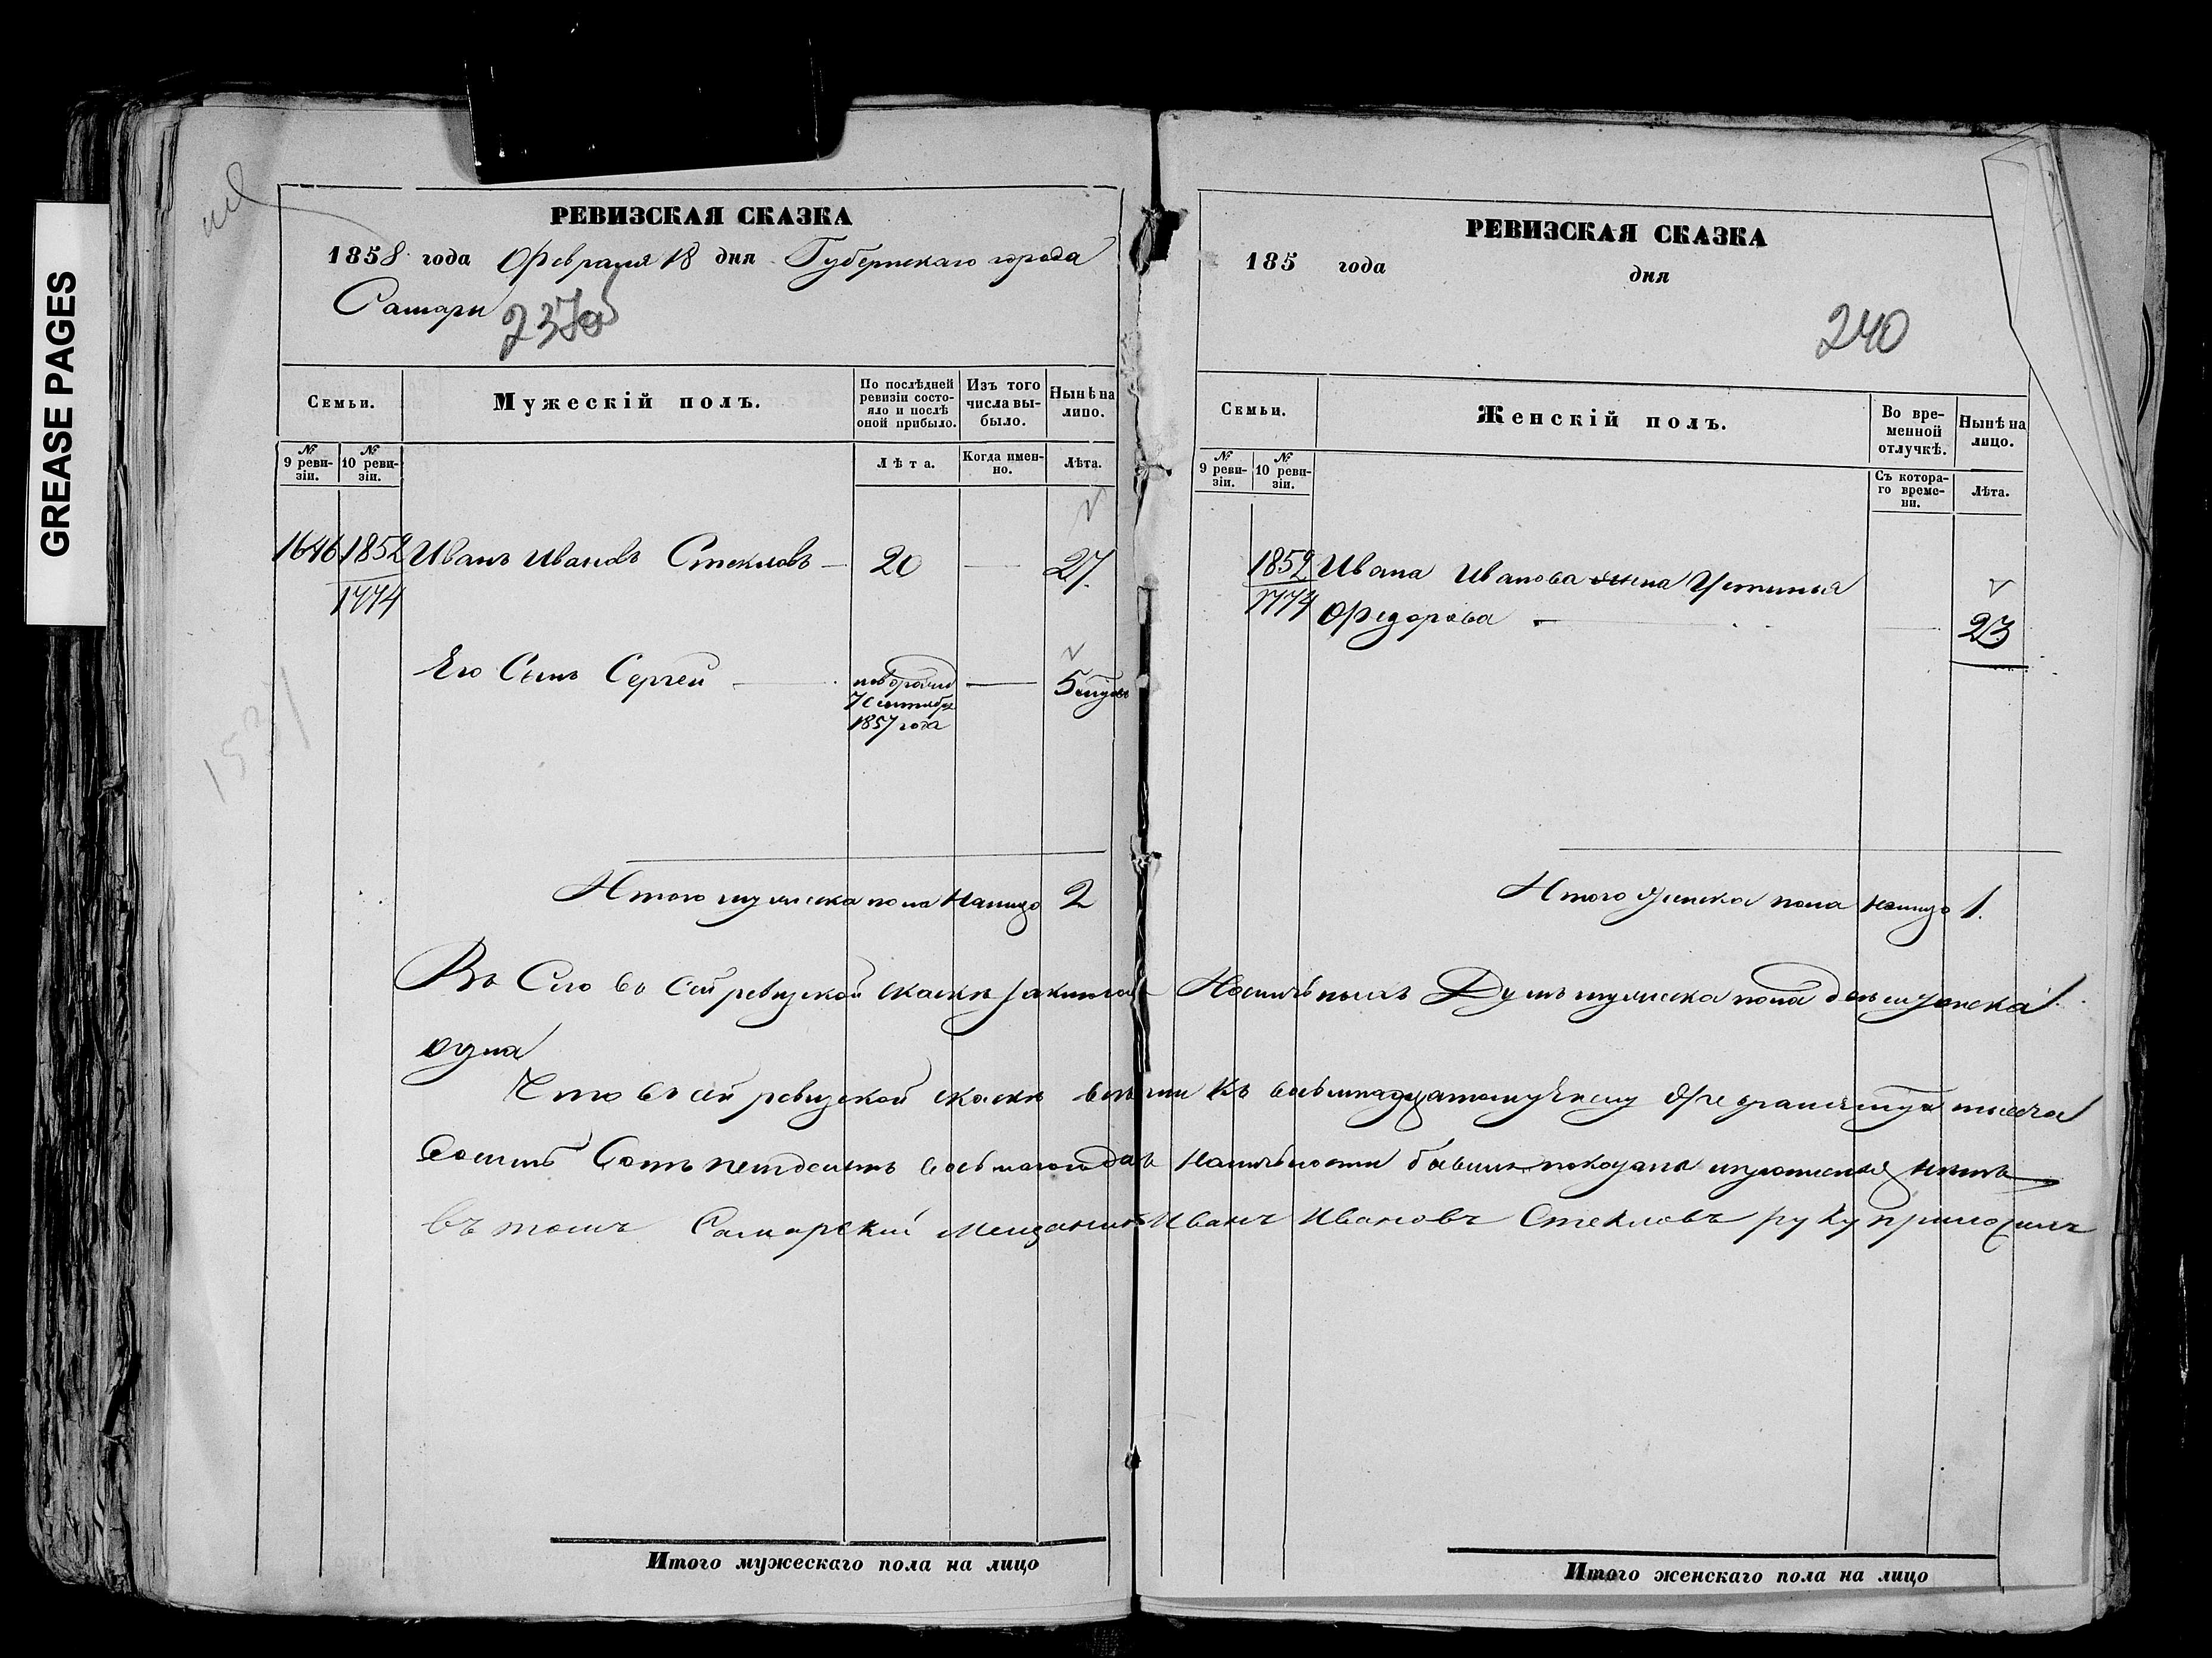 GREASE PAGES
РЕВИЗСКАЯ СКАЗКА
1858 года Февраля 18 дня Губернскаго города
Самары
Семьи.
Мужескій полъ.
По послѣдней ревизіи состояло и послѣ оной прибыло.
Изъ того числа выбыло.
Нынѣ на лицо.
№ 9 ревизіи.
№ 10 ревизіи.
Лѣта.
Когда именно.
Лѣта.
1646 1852 Иванъ Ивановъ Стекловъ 20 — 27
1774
Его Сынъ Сергей — новорожд — 5
7 Сентября
1857 года
Итого мужеска пола налицо 2
РЕВИЗСКАЯ СКАЗКА
185 года дня
240
Семьи.
Женскій полъ.
Во временной отлучкѣ.
Нынѣ на лицо.
№ 9 ревизіи.
№ 10 ревизіи.
Съ котораго времени.
Лѣта.
1852 Ивана Иванова жена Устинья
1774 Федорова — 23
Итого женска пола налицо 1.
сей ревизской скаскѣ Наличныхъ Душъ мужеска пола двѣ женска
одна
Что в сей ревизской скаскѣ всѣ къ восьмнадцатому Февраля тысяча
восемь Сотъ петдесятъ восьмаго года в наличности бывши показаны нѣтъ
въ томъ Самарский Мещанинъ Иванъ Ивановъ Стекловъ руку приложилъ
Итого мужескаго пола на лицо
Итого женскаго пола на лицо